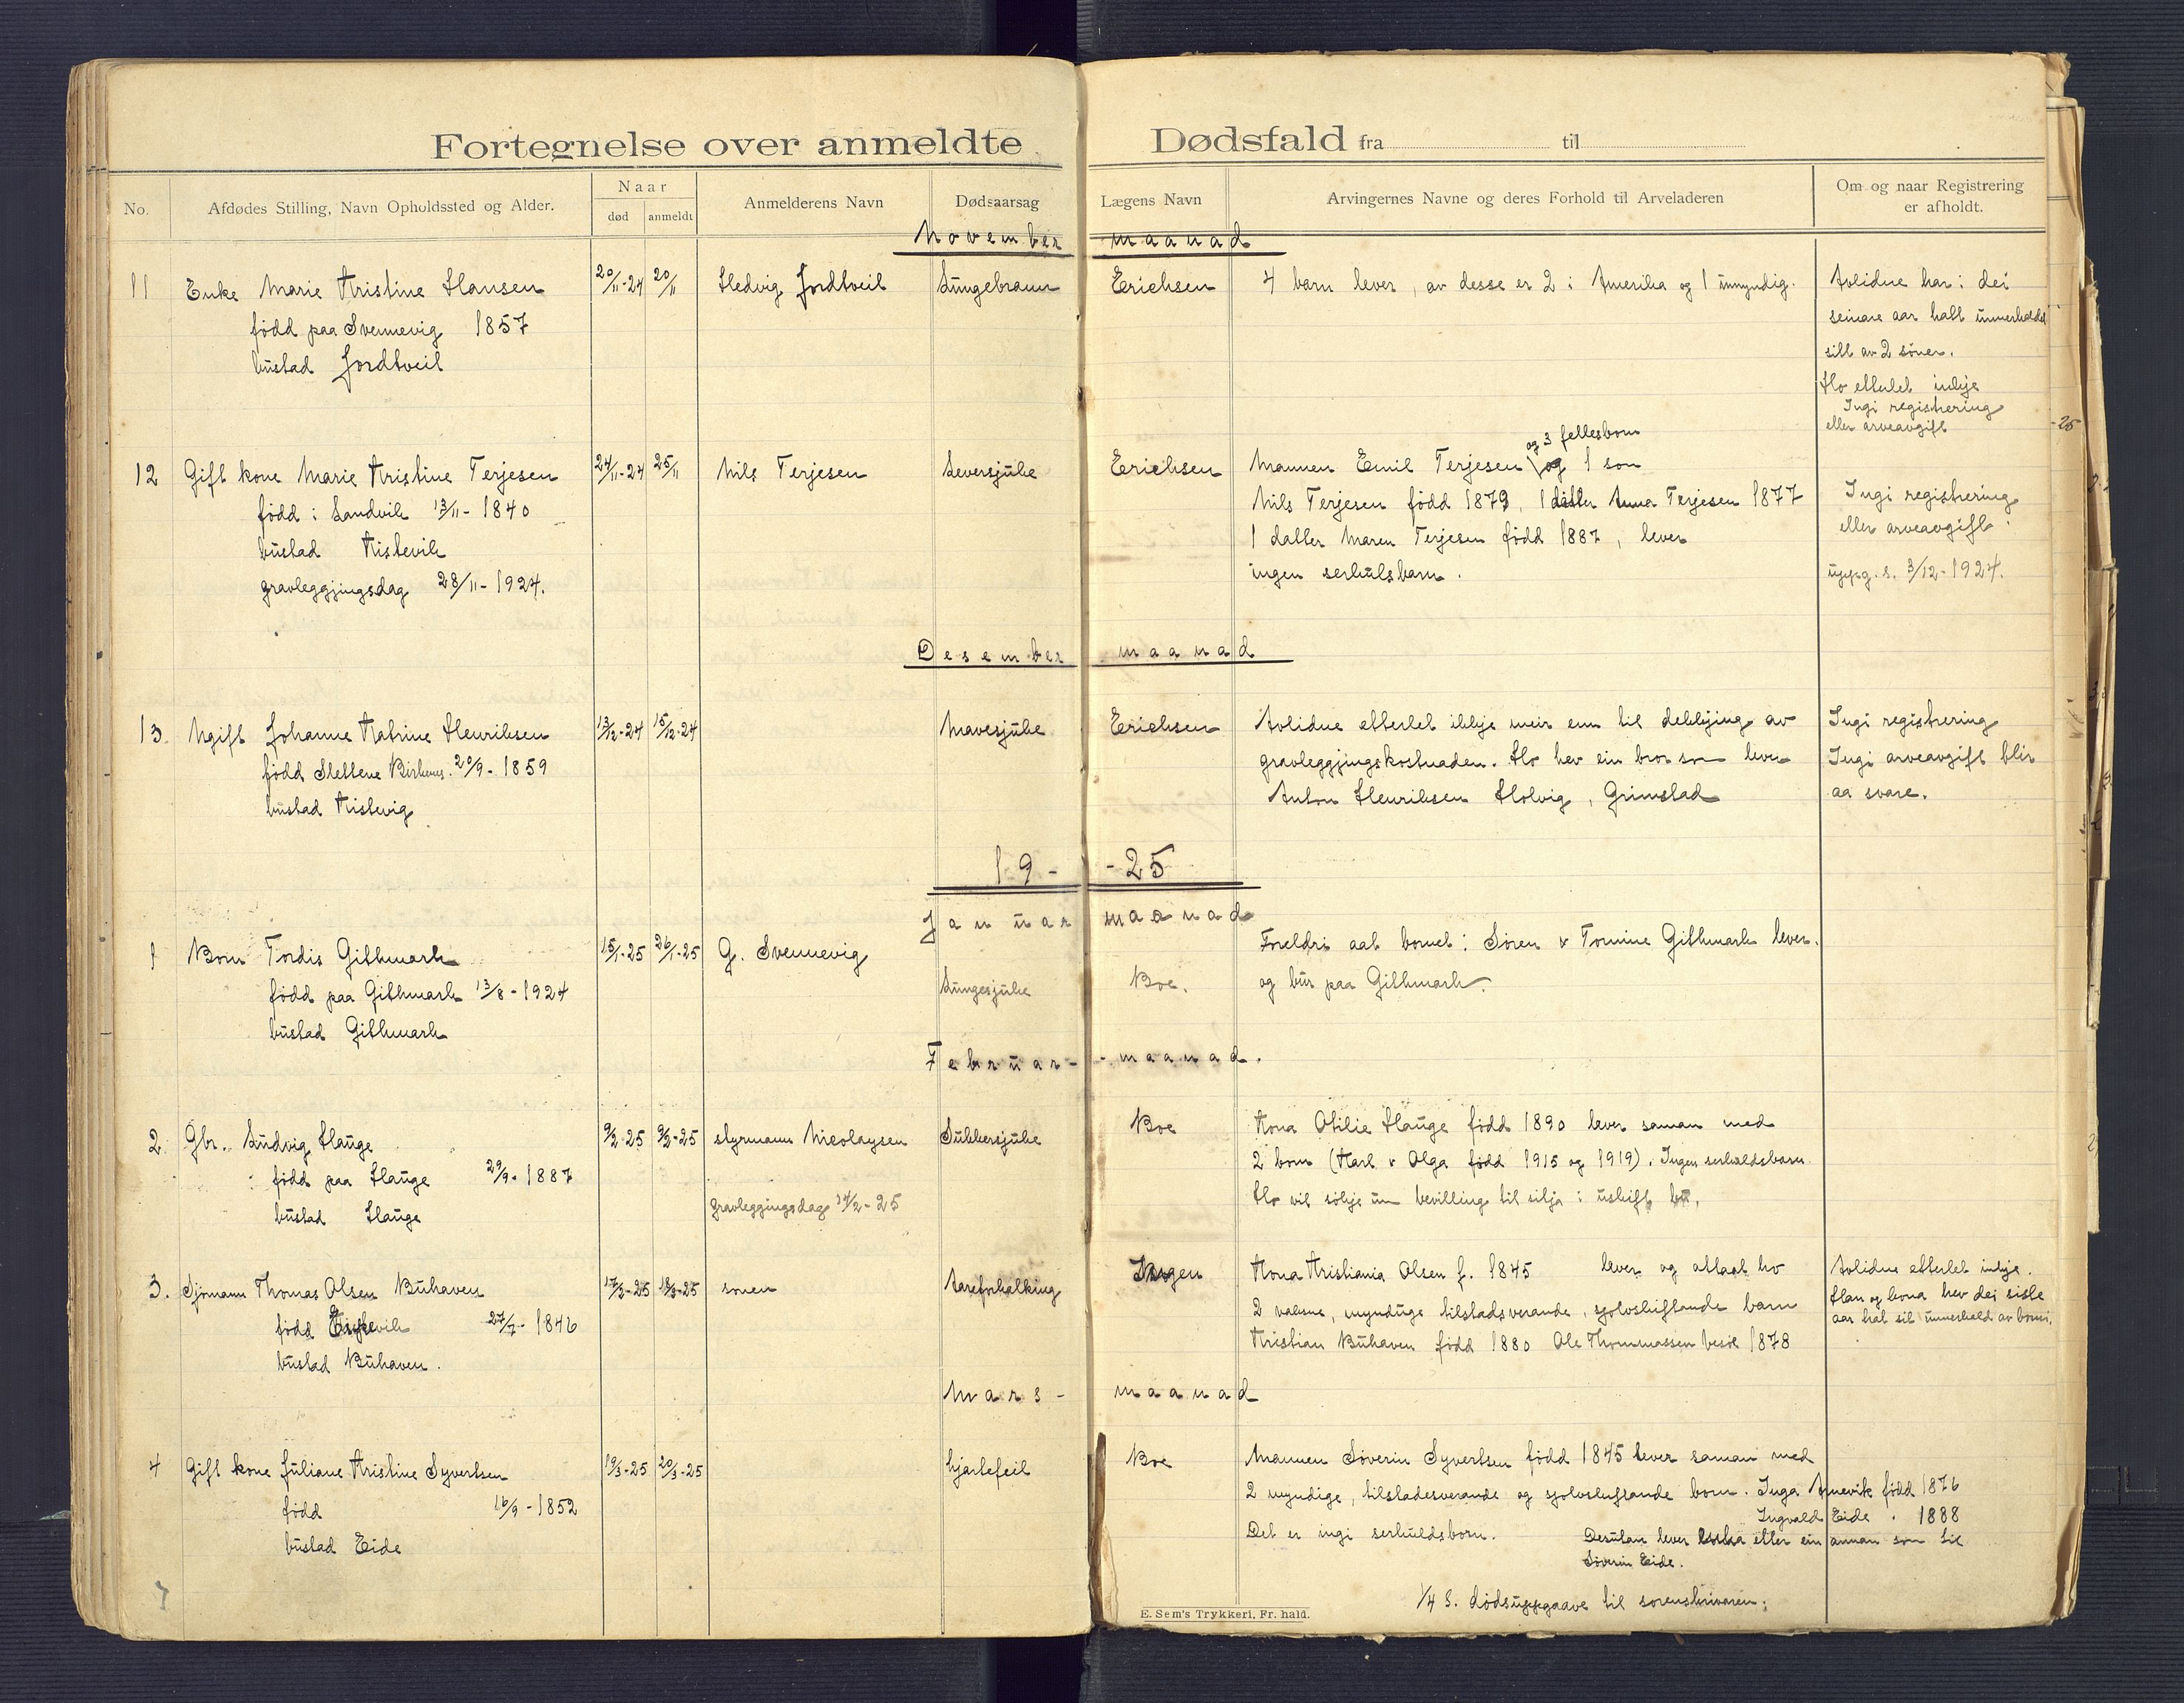 Fortegnelse over anmeldte Dødsfald fra til
No. Afdødes Stilling, Navn Opholdssted og Alder. Naar død anmeldt Anmelderens Navn Dødsaarsag Lægens Navn Arvingernes Navne og deres Forhold til Arveladeren Om og naar Registrering er afholdt.
November maanad
11 Enke Marie Kristine Hansen 20/11-24 20/11 Hedvig Jordtveit Lungebraun Erichsen 4 barn lever, av desse er 2 i Amerika og 1 umyndig. Avlidne har i dei
född paa Svennevig 1857 seinare aar halt
bustad Jordtveit sitt av 2 söner.
Ho etterlet inkje
Ingi registrering
eller arveavgift
-25
12 Gift kone Marie Kristine Terjesen 24/11-24 25/11 Nils Terjesen Leversjuke Erichsen Mannen Emil Terjesen og 3 fellesborn og 1 son
född i Landvik 13/11-1840 Nils Terjesen född 1879, 1 datter Anna Terjesen 1877 Ingi registrering
bustad Kistevik 1 datter Maren Terjesen född 1887, lever eller arveavgift.
gravleggjingsdag 28/11-1924. ingen serkulsbarn. uppg. s. 3/12-1924.
Desember maanad
13. Ugift Johanne Katrine Henriksen 13/12-24 15/12-24 Mavesjuke Erichsen Avlidne etterlet ikkje meir enn til dekkjing av Ingi registrering
född Slettene Birkenes. 20/9-1859 gravleggjingskostnaden. Ho hev ein bror som lever Ingi arveavgift blir
bustad Kistevig Anton Henriksen Holvig, Grimstad aa svare.
19- -25
Januar maanad
1 Born Tordis Githmark 15/1-25 26/1-25 G. Svennevig Foreldri aat bornet: Sören & Tomine Githmark lever.
född paa Githmark 13/8-1924 Lungesjuke Boe. og bur paa Githmark.
bustad Githmark
Februar- -maanad.
2. Gbr. Ludvig Hauge 9/2-25 9/2-25 styrmann Nicolaysen Sukkersjuke Boe Kona Otilie Hauge född 1890 lever saman med
född paa Hauge 29/9-1887 2 born (Karl & Olga född 1915 og 1919). Ingen serkuldsbarn.
bustad Hauge gravleggingsdag 14/2-25 Ho vil sökje um bevilling til sitja i uskift bu.
3. Sjömann Thomas Olsen Buhaven 17/2-25 18/2-25 sonen Aareforkalking Ingen Kona Kristiania Olsen f. 1845 lever og attaat ho Avlidne etterlet inkje.
född 27/7-1846 2 vaksne, mynduge tilstadsverande, sjolvskiftande barn Han og kona hev dei siste
bustad Buhaven. Kristian Buhaven född 1880 Ole Thommassen 1878 aar hat sit underhald av borni.
Mars- maanad
4 Gift kone Juliane Kristine Syvertsen 19/3-25 20/3-25 hjartefeil Boe Mannen Söverin Syvertsen född 1845 lever saman med
född 16/9-1852 2 myndige, tilstadesverande og sjolvskiftande born. Inga Arnevik född 1876
Ingvald Eide. 1888
bustad Eide Det er ingi serkuldsborn. Desutan lever etter ein annan son til
Söverin Eide.
1/4 S. dödsuppgaave til sorenskrivaren.
E. Sem's Trykkeri, Fr. hald.